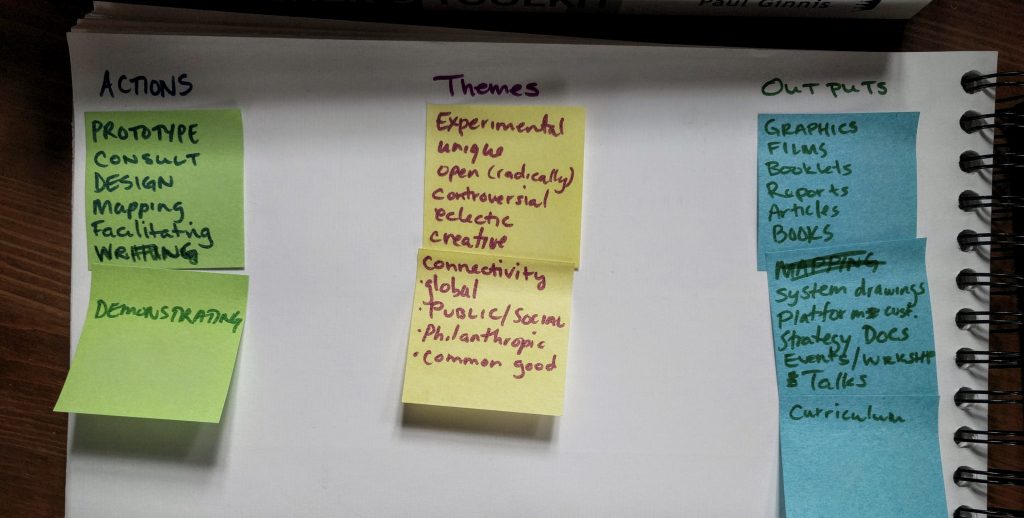 TOOLKIT
Paul Ginnis
ACTIONS
PROTOTYPE
CONSULT
DESIGN
Mapping
Facilitating
WRITING
DEMONSTRATING
Themes
Experimental
unique
open (radically)
controversial
eclectic
creative
Connectivity
· global
· PUBLIC/SOCIAL
· Philanthropic
· Common good
OUTPUTS
GRAPHICS
FILMS
Booklets
Reports
Articles
BOOKS
MAPPING
System drawings
Platforms cust.
Strategy DOCS
EVENTS/WRKSHP
& Talks
Curriculum